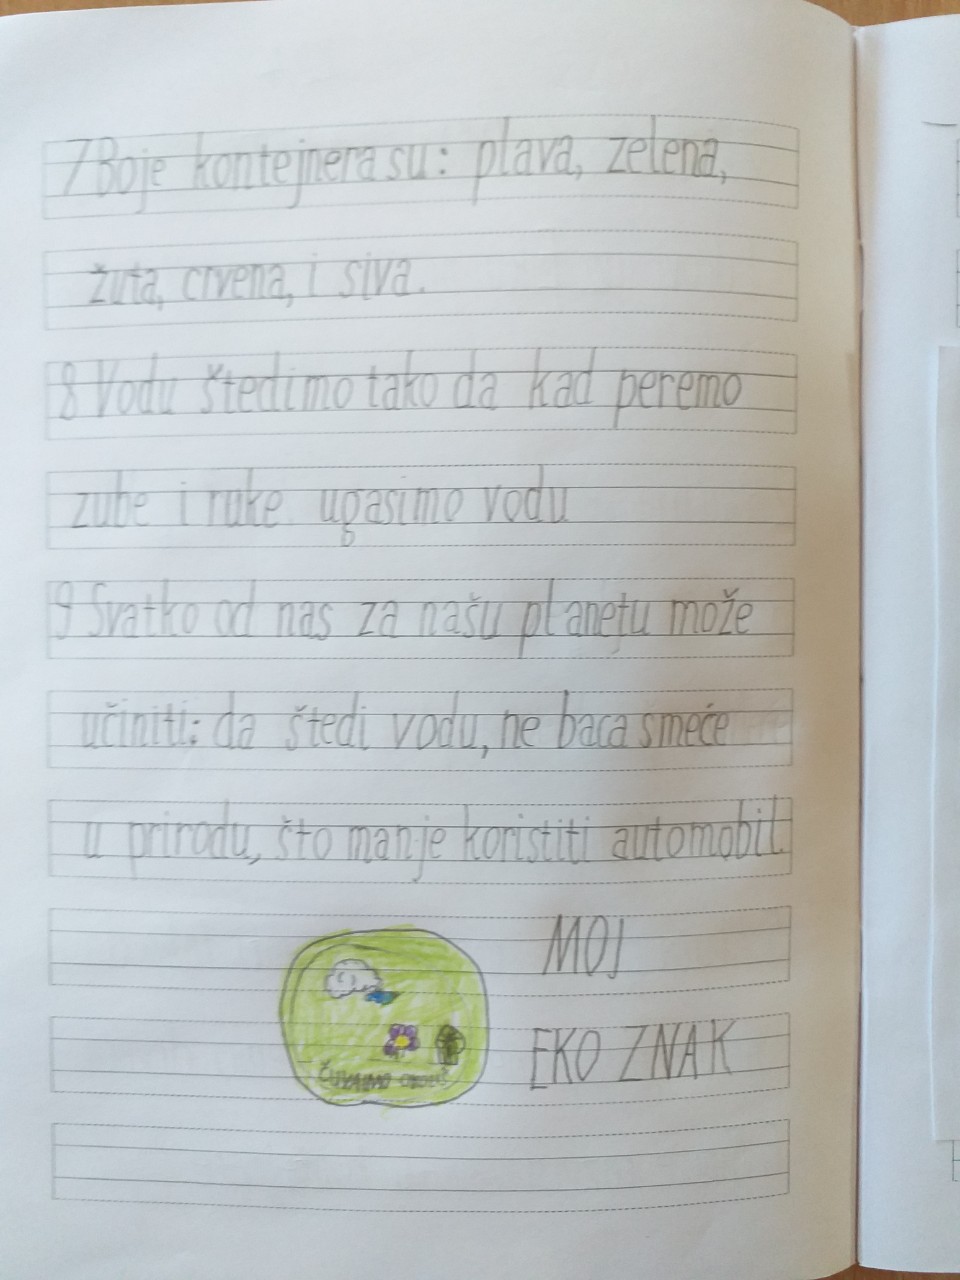 7 Boje kontejnera su: plava, zelena,
žuta, crvena, i siva.
8 Vodu štedimo tako da kad peremo
zube i ruke ugasimo vodu
9 Svatko od nas za našu planetu može
učiniti: da štedi vodu, ne baca smeće
u prirodu, što manje koristiti automobil.
MOJ
EKO ZNAK
Čuvajmo okoliš